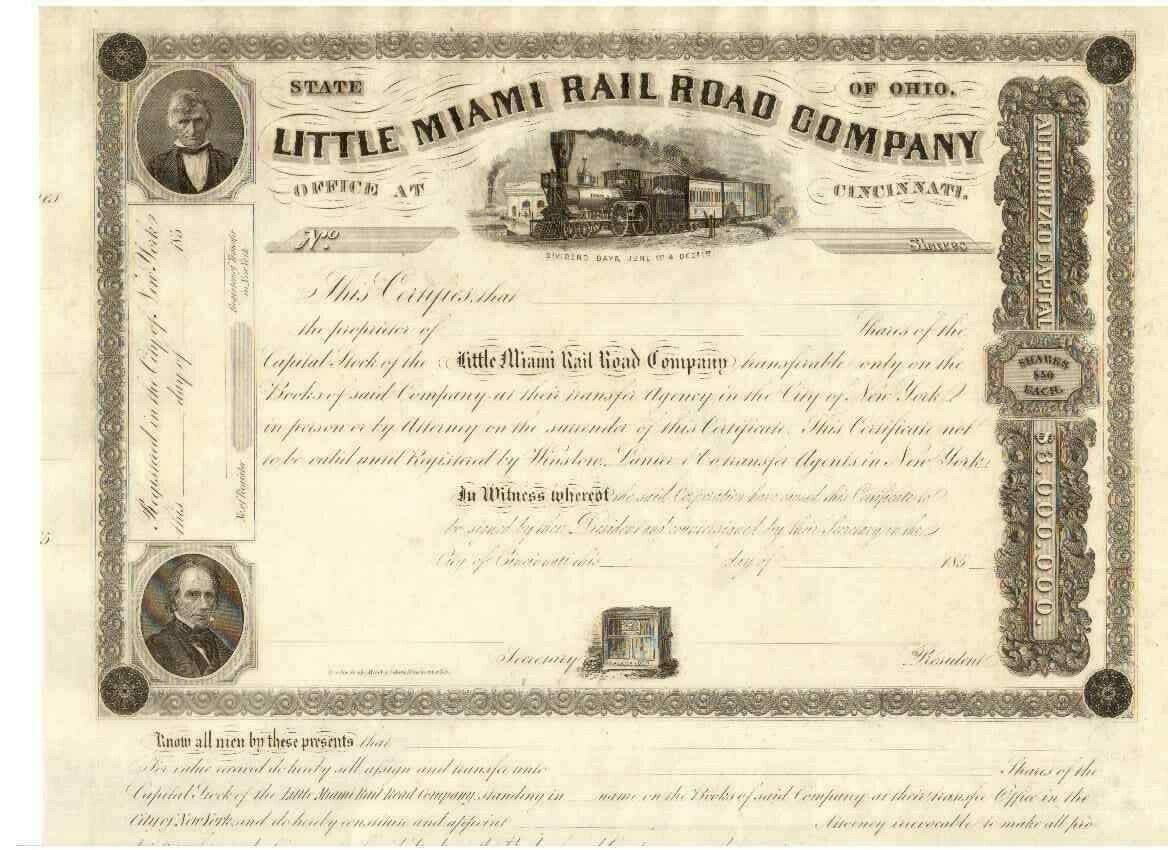 STATE OF OHIO.
LITTLE MIAMI RAIL ROAD COMPANY
OFFICE AT CINCINNATI.
No. Shares
DIVIDEND DAYS, JUNE 1ST & DEC 1ST
This Certifies, that
the proprietor of Shares of the
Capital Stock of the Little Miami Rail Road Company transferable only on the
Books of said Company at their transfer Agency in the City of New York
in person or by Attorney on the surrender of this Certificate. This Certificate not
to be valid until Registered by Winslow, Lanier & Co transfer Agents in New York.
In Witness whereof the said Corporation have caused this Certificate to
be signed by their President and countersigned by their Secretary in the
City of Cincinnati this day of 185
Secretary President
Registered in the City of New York
this day of 185
Register of Transfer
in New York
AUTHORIZED CAPITAL
SHARES
$50
EACH.
$3.000.000.
Know all men by these presents that
For value received do hereby sell assign and transfer unto Shares of the
Capital Stock of the Little Miami Rail Road Company, standing in name on the Books of said Company at their transfer Office in the
City of New York and do hereby constitute and appoint Attorney irrevocable to make all pro